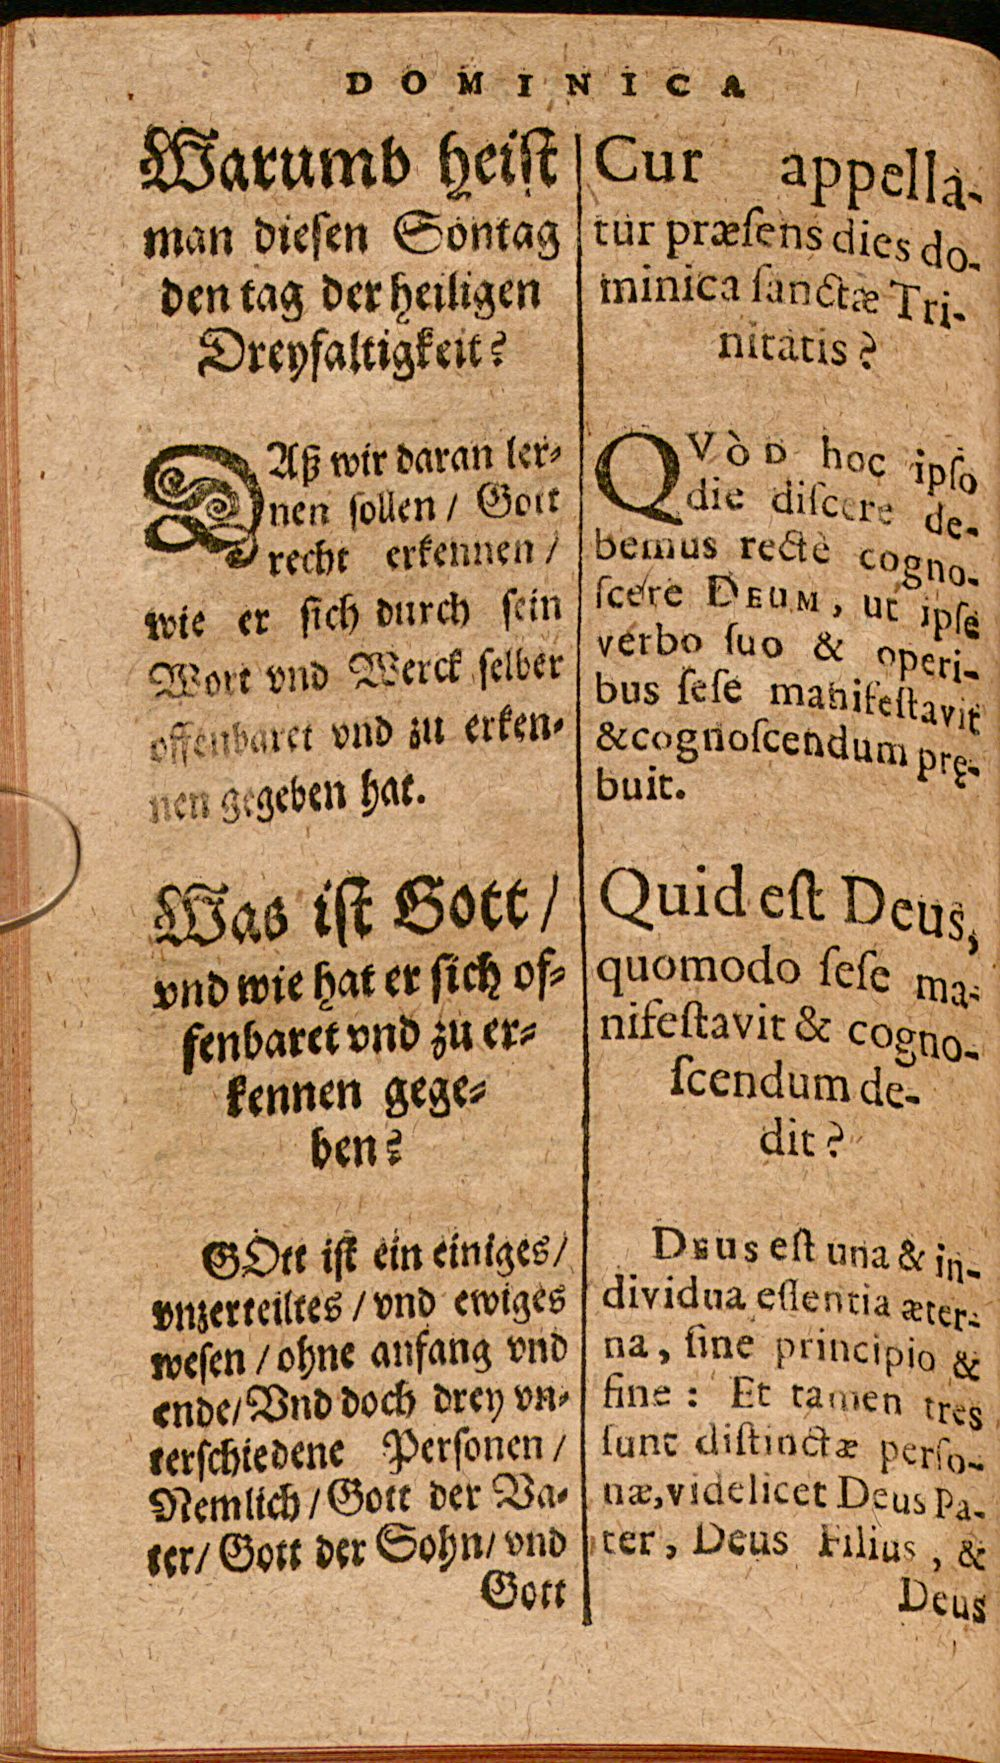 DOMINICA
Warumb heist
man diesen Sontag
den tag der heiligen
Dreyfaltigkeit?
DAß wir daran ler-
nen sollen / Gott
recht erkennen /
wie er sich durch sein
Wort vnd Werck selber
offenbaret vnd zu erken-
nen gegeben hat.
Was ist Gott /
vnd wie hat er sich of-
fenbaret vnd zu er-
kennen gege-
ben?
GOtt ist ein einiges /
vnzerteiltes / vnd ewiges
wesen / ohne anfang vnd
ende / Vnd doch drey vn-
terschiedene Personen /
Nemlich / Gott der Va-
ter / Gott der Sohn / vnd
Gott
Cur appella-
tur præſens dies do-
minica ſanctæ Tri-
nitatis?
QVòD hoc ipſo
die diſcere de-
bemus rectè cogno-
ſcere DEUM, ut ipſe
verbo ſuo & operi-
bus ſeſe manifeſtavit
& cognoſcendum prę-
buit.
Quid eſt Deus,
quomodo ſeſe ma-
nifeſtavit & cogno-
ſcendum de-
dit?
DEUS eſt una & in-
dividua eſſentia æter-
na, ſine principio &
fine: Et tamen tres
ſunt diſtinctæ perſo-
næ, videlicet Deus Pa-
ter, Deus Filius, &
Deus